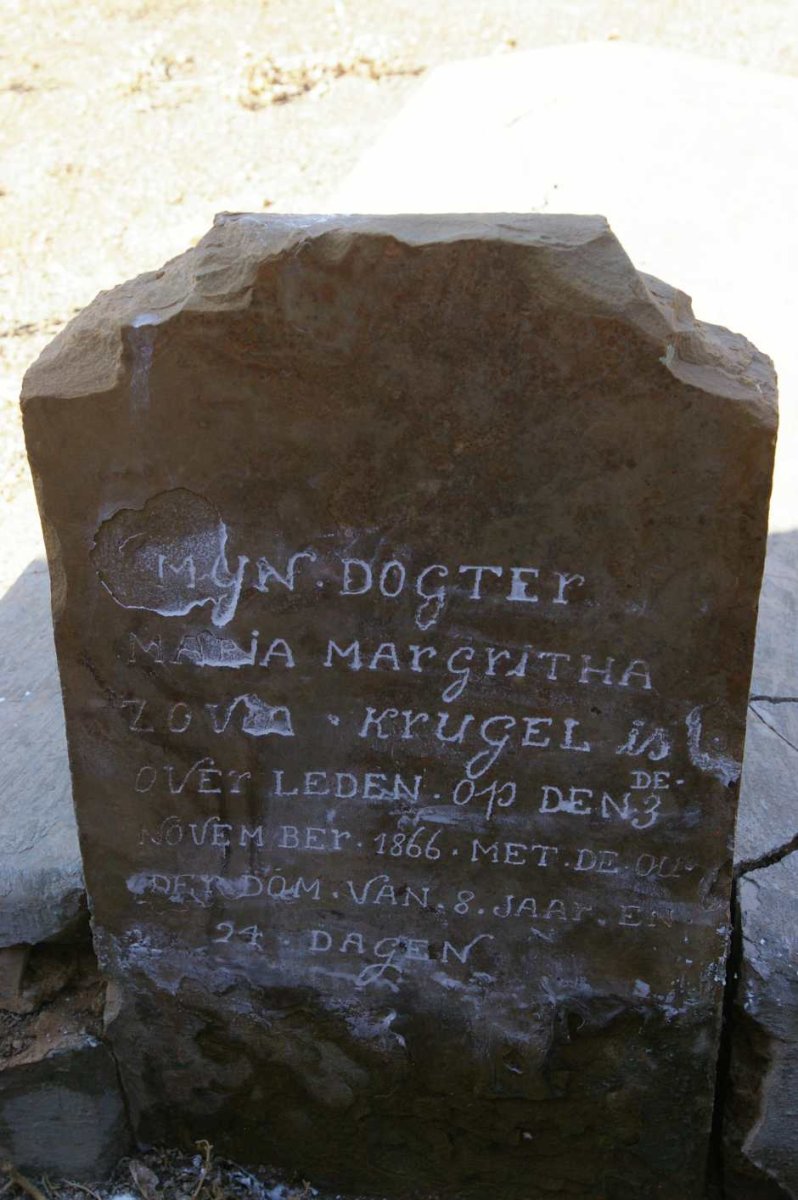 MYN. DOGTER
MARIA MARGRITHA
ZOVIA. KRUGEL is
OVER LEDEN. OP DEN 3DE.
NOVEMBER. 1866. MET. DE. OU-
DER DOM. VAN. 8. JAAR. EN
24. DAGEN